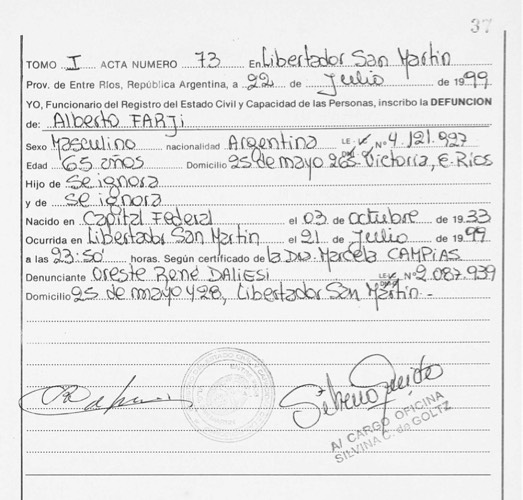 37
TOMO I ACTA NUMERO 73 En Libertador San Martin
Prov. de Entre Ríos, República Argentina, a 22 de Julio de 1999
YO, Funcionario del Registro del Estado Civil y Capacidad de las Personas, inscribo la DEFUNCION
de: Alberto FARJi
Sexo Masculino nacionalidad Argentina LE. Nº 4.121.927
Edad 65 años Domicilio 25 de mayo 265 Victoria, E. Rios
Hijo de Se ignora
y de Se ignora
Nacido en Capital Federal el 03 de octubre de 1933
Ocurrida en Libertador San Martin el 21 de Julio de 1999
a las 23:50' horas. Según certificado de la Dra. Marcela CAMPIAS
Denunciante Oreste René DALiESi LE. Nº 2.087.939
Domicilio 25 de mayo 428, Libertador San Martin -
A/ CARGO OFICINA
SILVINA C. de GOLTZ